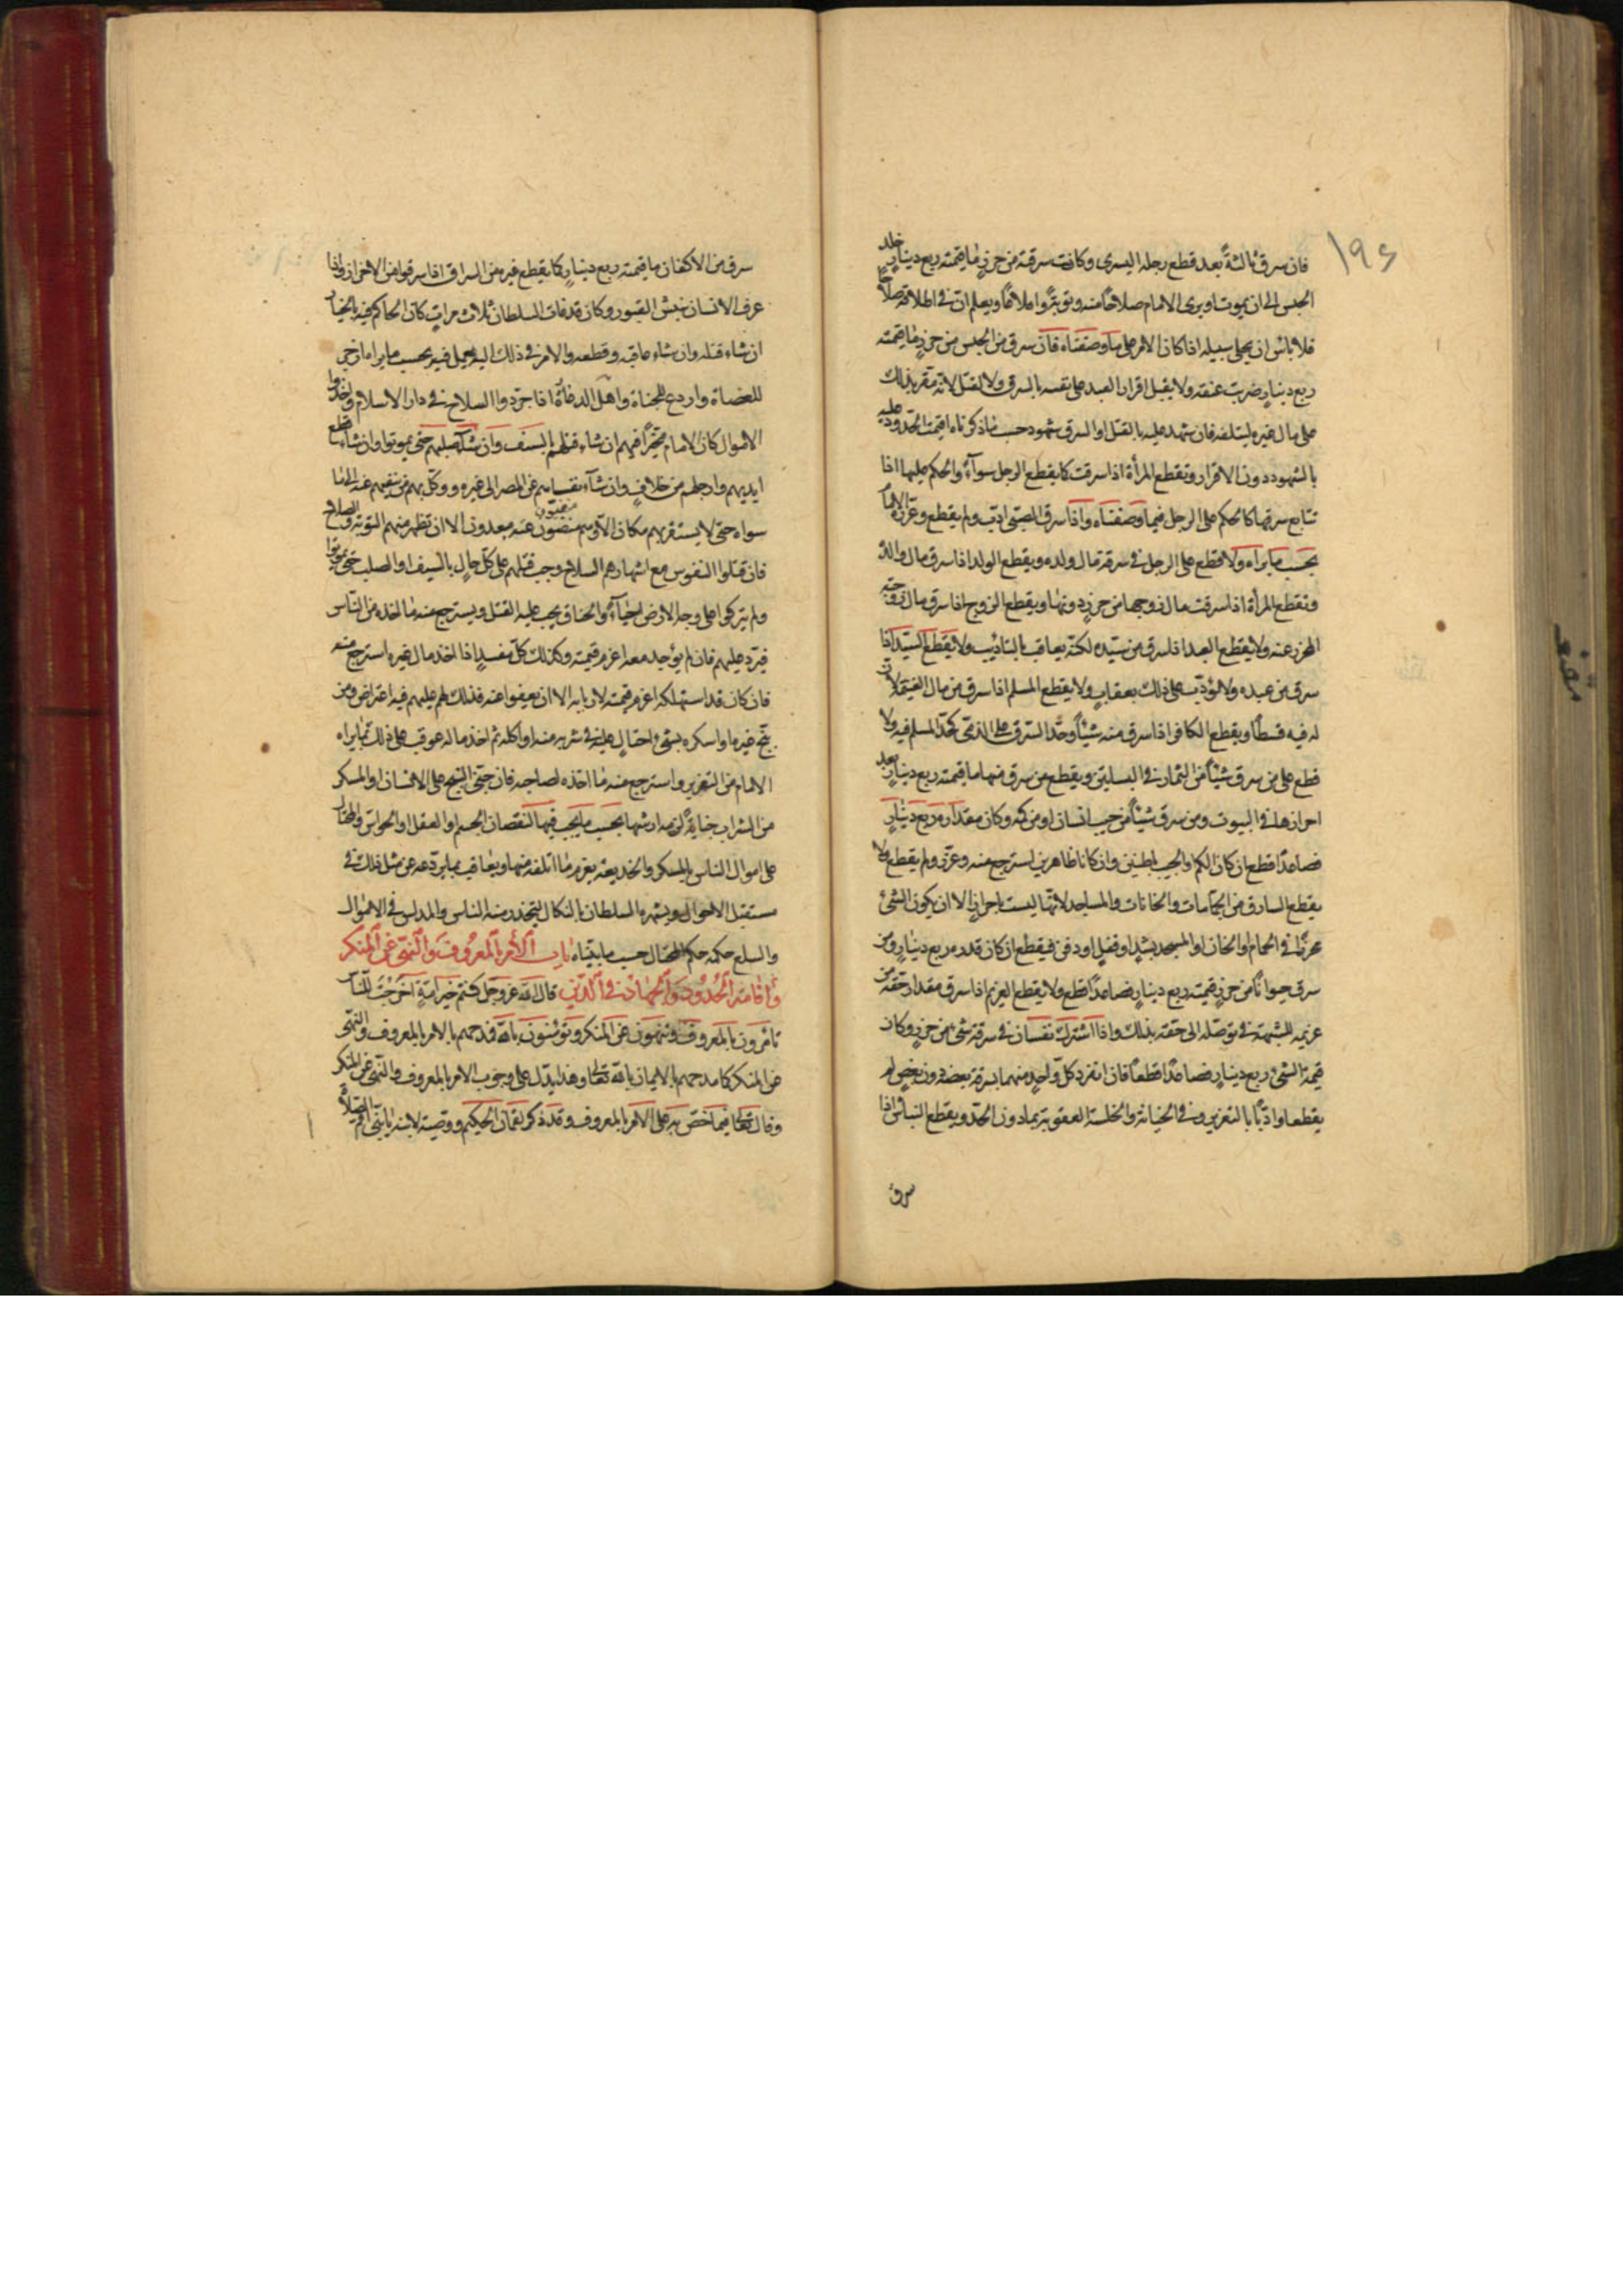 ١٩٤
فان سرق ثالثةً بعد قطع رجله اليسرى وكانت سرقته من حرزٍ ما قيمته ربع دينارٍ خلد
الحبس الى ان يموت او يرى الامام صلاحًا منه وتوبةً واقلاعًا ويعلم ان في اطلاقه صلاحًا
فلا باس ان يخلى سبيله اذا كان الامر على ما وصفناه فان سرق من الحبس من حرزٍ ما قيمته
ربع دينارٍ ضربت عنقه ولا يقبل اقرار العبد على نفسه بالسرق ولا القتل لانه مقر بذلك
على مال غيره ليتلفه فان شهد عليه بالقتل او السرق شهود حسب ما ذكرناه اقيمت الحدود عليه
بالشهود دون الاقرار وتقطع المرأة اذا سرقت كما يقطع الرجل سوآءً والحكم عليها اذا
تتابع سرقها كالحكم على الرجل فيما وصفناه واذا سرق الصبى ادّب ولم يقطع وعزّره الامام
بحسب ما يراه ولا قطع على الرجل في سرقة مال ولده ويقطع الولد اذا سرق مال والده
وتقطع المرأة اذا سرقت مال زوجها من حرزٍ دونها ويقطع الزوج اذا سرق مال زوجته
المحرز عنه ولا يقطع العبد اذا سرق من سيّده لكنّه يعاقب بالتاديب ولا يقطع السيّد اذا
سرق من عبده ولا يؤدّب على ذلك بعقابٍ ولا يقطع المسلم اذا سرق من مال الغنيمة لان
له فيه قسطًا ويقطع الكافر اذا سرق منه شيئًا وحدّ السرق على الذمّى كحدّ المسلم فيه ولا
قطع على من سرق شيئًا من الثمار في البساتين ويقطع من سرق منها ما قيمته ربع دينارٍ بعد
احرازها في البيوت ومن سرق شيئًا من جيب انسان او من كمّه وكان مقداره ربع دينارٍ
فصاعدًا قطع ان كان الكم او الجيب باطنين وان كانا ظاهرين استرجع منه وعزّر ولم يقطع ولا
يقطع السارق من الحمّامات والخانات والمساجد لانّها ليست باحرازٍ الا ان يكون الشئ
محرزًا في الحمام او الخان او المسجد بشدٍ او قفلٍ او دفنٍ فيقطع ان كان قدره ربع دينارٍ ومن
سرق حيوانًا من حرزٍ قيمته ربع دينارٍ فصاعدًا قطع ولا يقطع الغريم اذا سرق مقدار حقّه من
غريمه للشبهة في توصّله الى حقّه بذلك واذا اشترك نفسان في سرقة شئ من حرزٍ وكان
قيمة الشئ ربع دينارٍ فصاعدًا قطعا فان انفرد كلّ واحدٍ منهما بسرقة بعضه دون بعضٍ لم
يقطعا وادّبا بالتعزير وفي الخيانة والخلسة العقوبة بما دون الحدّ ويقطع النبّاش اذا
سرق
سرق من الاكفان ما قيمته ربع دينارٍ كما يقطع غيره من السراق اذا سرقوا من الاحراز واذا
عرف الانسان بنبش القبور وكان قد فات السلطان ثلاث مراتٍ كان الحاكم فيه بالخيار
ان شاء قتله وان شاء عاقبه وقطعه والامر في ذلك اليه يعمل فيه بحسب ما يراه ازجر
للعصاة واردع للجناة واهل الدغارة اذا جرّدوا السلاح في دار الاسلام واخذوا
الاموال كان الامام مخيّرًا فيهم ان شاء قتلهم بالسيف وان شآء صلبهم حتى يموتوا وان شاء قطع
ايديهم وارجلهم من خلافٍ وان شآء نفاهم عن المصر الى غيره ووكّل بهم من ينفيهم عنه الى ما
سواه حتى لا يستقر بهم مكان الا وهم منفيون عنه مبعدون الا ان تظهر منهم التوبة والصلاح
فان قتلوا النفوس مع اشهارهم السلاح وجب قتلهم على كلّ حالٍ بالسيف او الصلب حتى يموتوا
ولم يتركوا على وجه الارض احياءً والخناق يجب عليه القتل ويسترجع منه ما اخذه من النّاس
فيردّ عليهم فان لم يوجد معه اغرم قيمته وكذلك كلّ مفسدٍ اذا اخذ مال غيره استرجع منه
فان كان قد استهلكه اغرم قيمته لاربابه الا ان يعفوا عنه فذلك لهم عليهم فيه اعتراض ومن
بنّج غيره او اسكره بشئ احتال عليه في شربه منه او اكله ثم اخذ ماله عوقب على ذلك بما يراه
الامام من التعزير واسترجع منه ما اخذه لصاحبه فان جنى البنج على الانسان او المسكر
من الشراب جنايةً الزم ارشها بحسب ما يجب فيها كنقصان الجسم او العقل او الحواس والمحتال
على اموال الناس بالمكر والخديعة يغرم ما اتلفه منها ويعاقب بما يردعه عن مثل ذلك في
مستقبل الاحوال ويشهره السلطان بالنكال ليحذر منه الناس والمدلس في الاموال
والسلع حكمه حكم المحتال حسب ما بيّناه باب الأمر بالمعروف والنّهى عن المنكر
واقامة الحدود والجهاد في الدّين قال الله عزّ وجلّ كنتم خير امّةٍ اخرجت للنّاس
تامرون بالمعروف وتنهون عن المنكر وتؤمنون بالله فمدحهم بالامر بالمعروف والنّهى
عن المنكر كما مدحهم بالايمان بالله تعالى وهذا يدلّ على وجوب الامر بالمعروف والنّهى عن المنكر
وقال تعالى فيما اختصّ به على الامر بالمعروف وقد ذكر لقمان الحكيم ووصيته لابنه يا بنىّ اقم الصّلاة